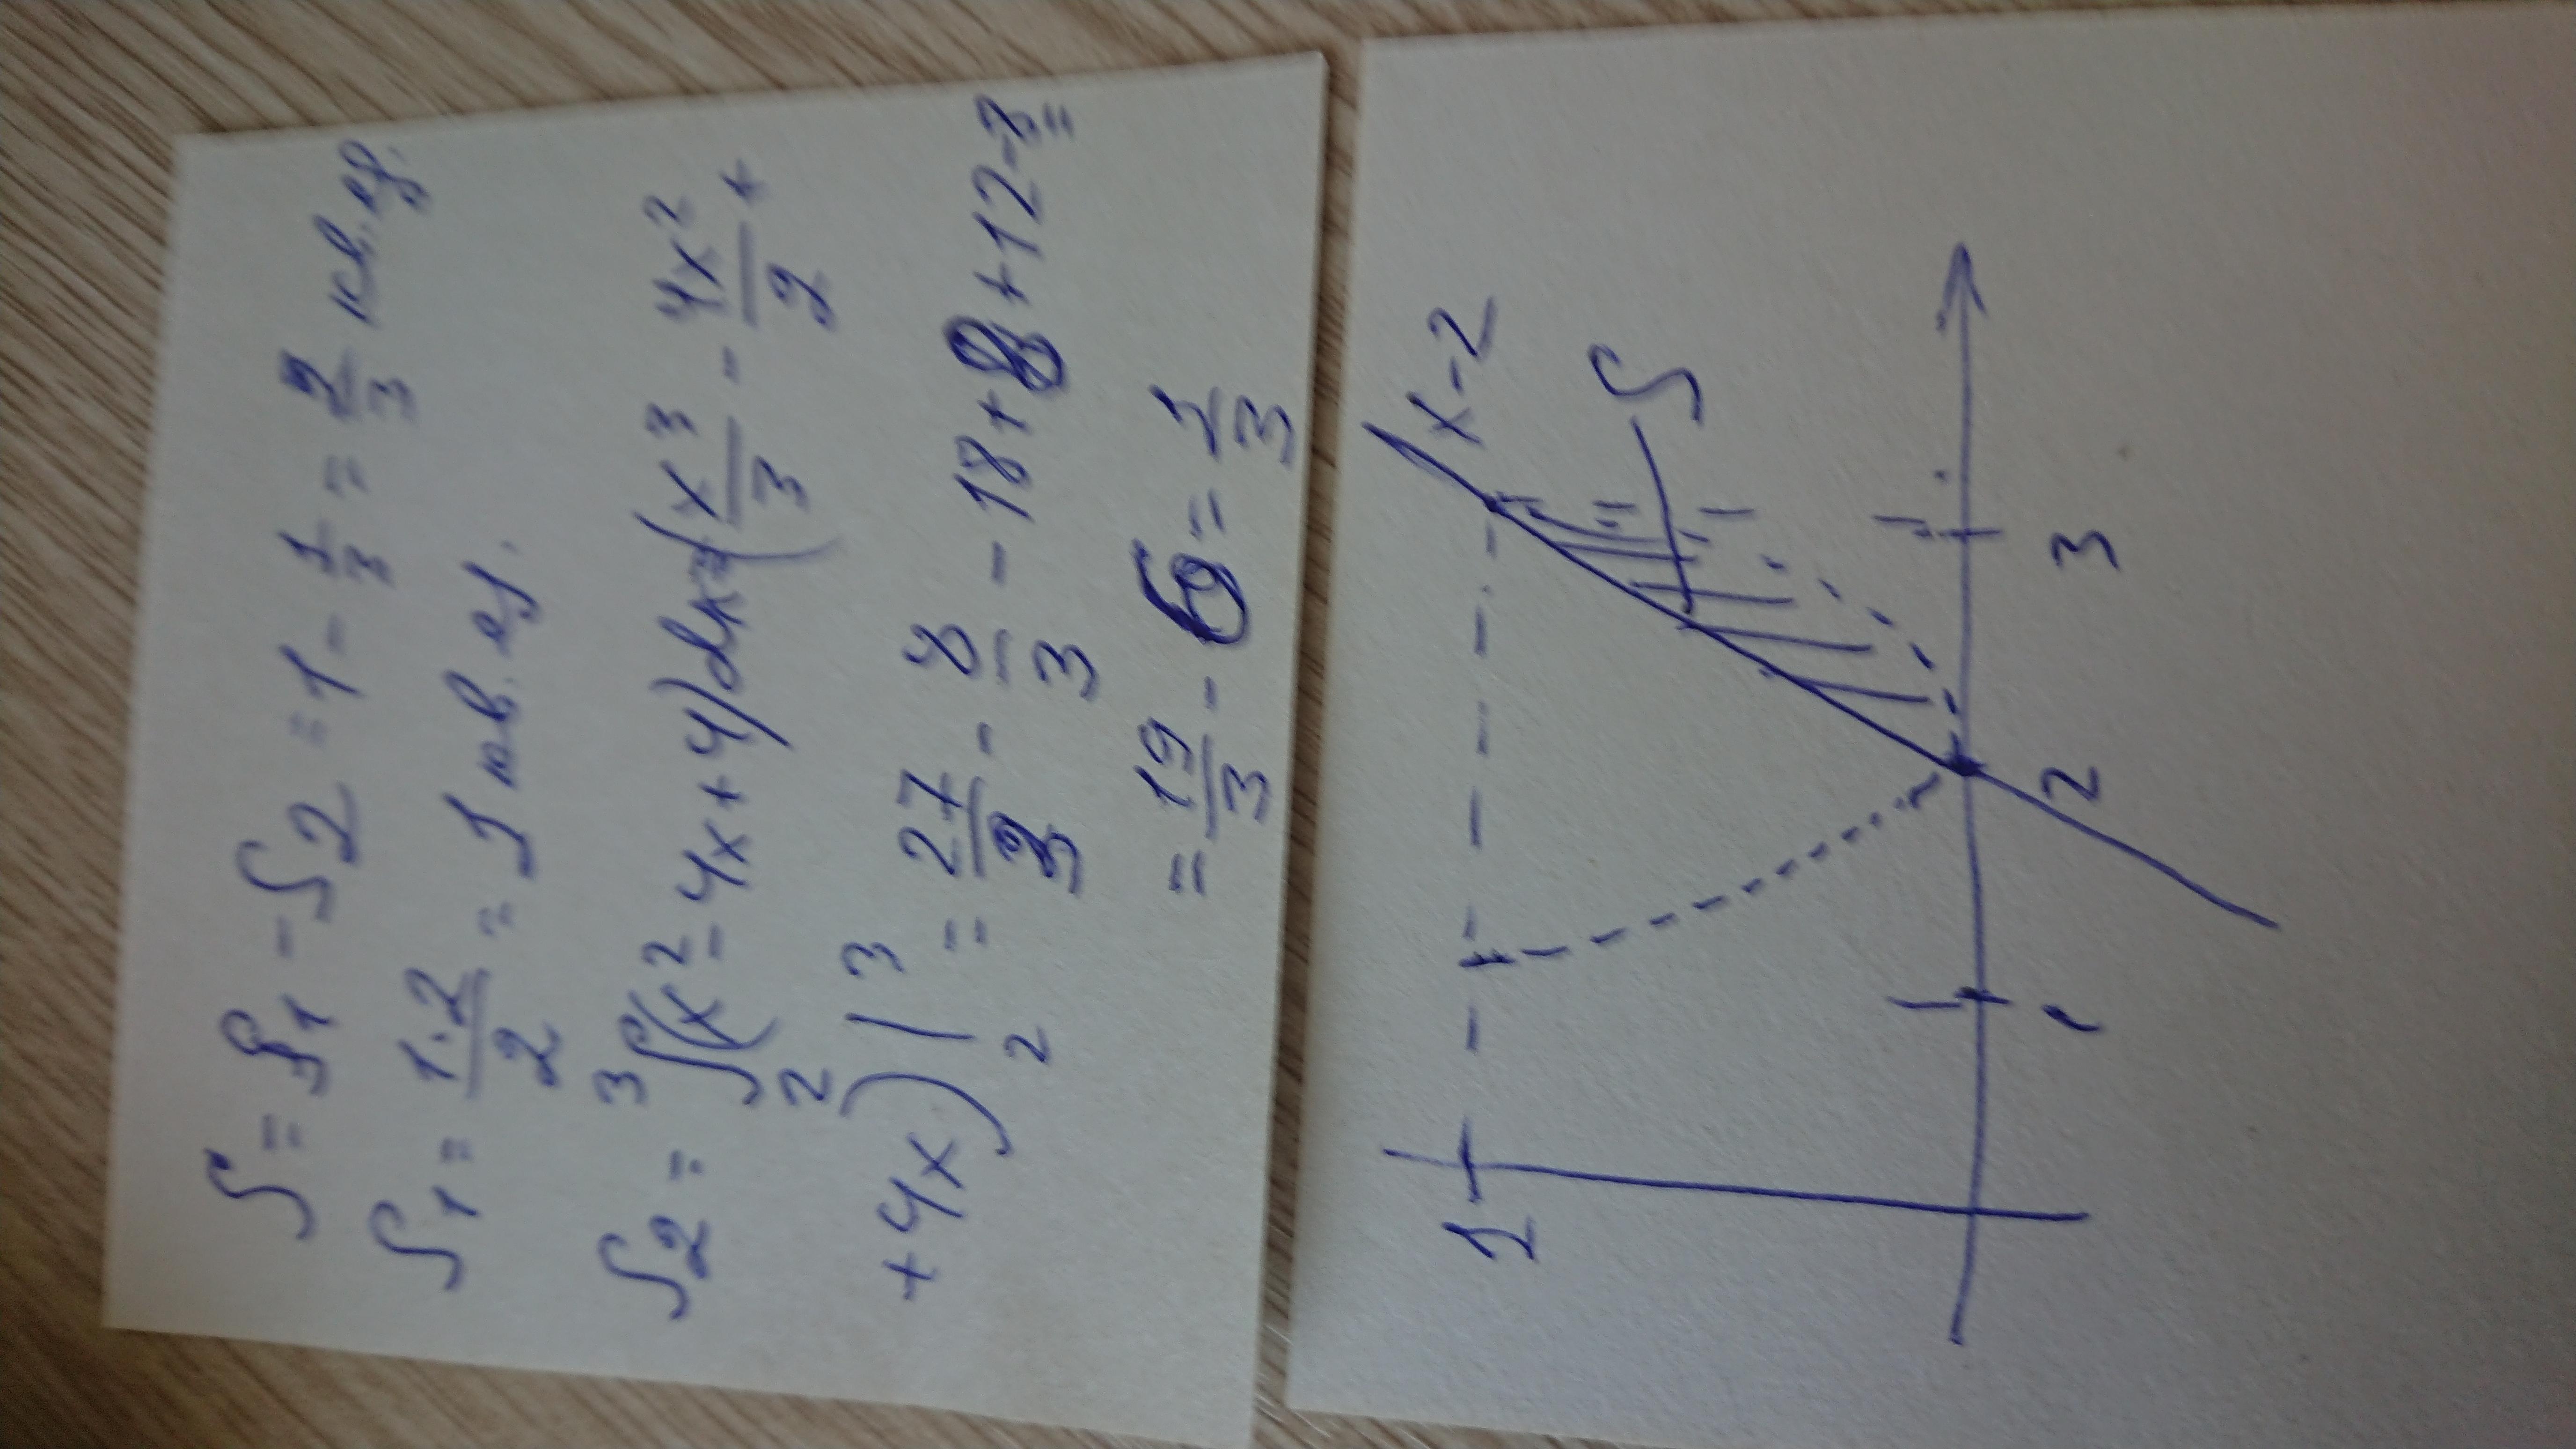 S = S1 - S2 = 1 - 1/3 = 2/3 кв. ед.
S1 = 1·2/2 = 1 кв. ед.
S2 = ³∫₂(x² - 4x + 4)dx = (x³/3 - 4x²/2 +
+ 4x) |³₂ = 27/3 - 8/3 - 18 + 8 + 12 - 8 =
= 19/3 - 6 = 1/3
x-2
S
1
1
2
3